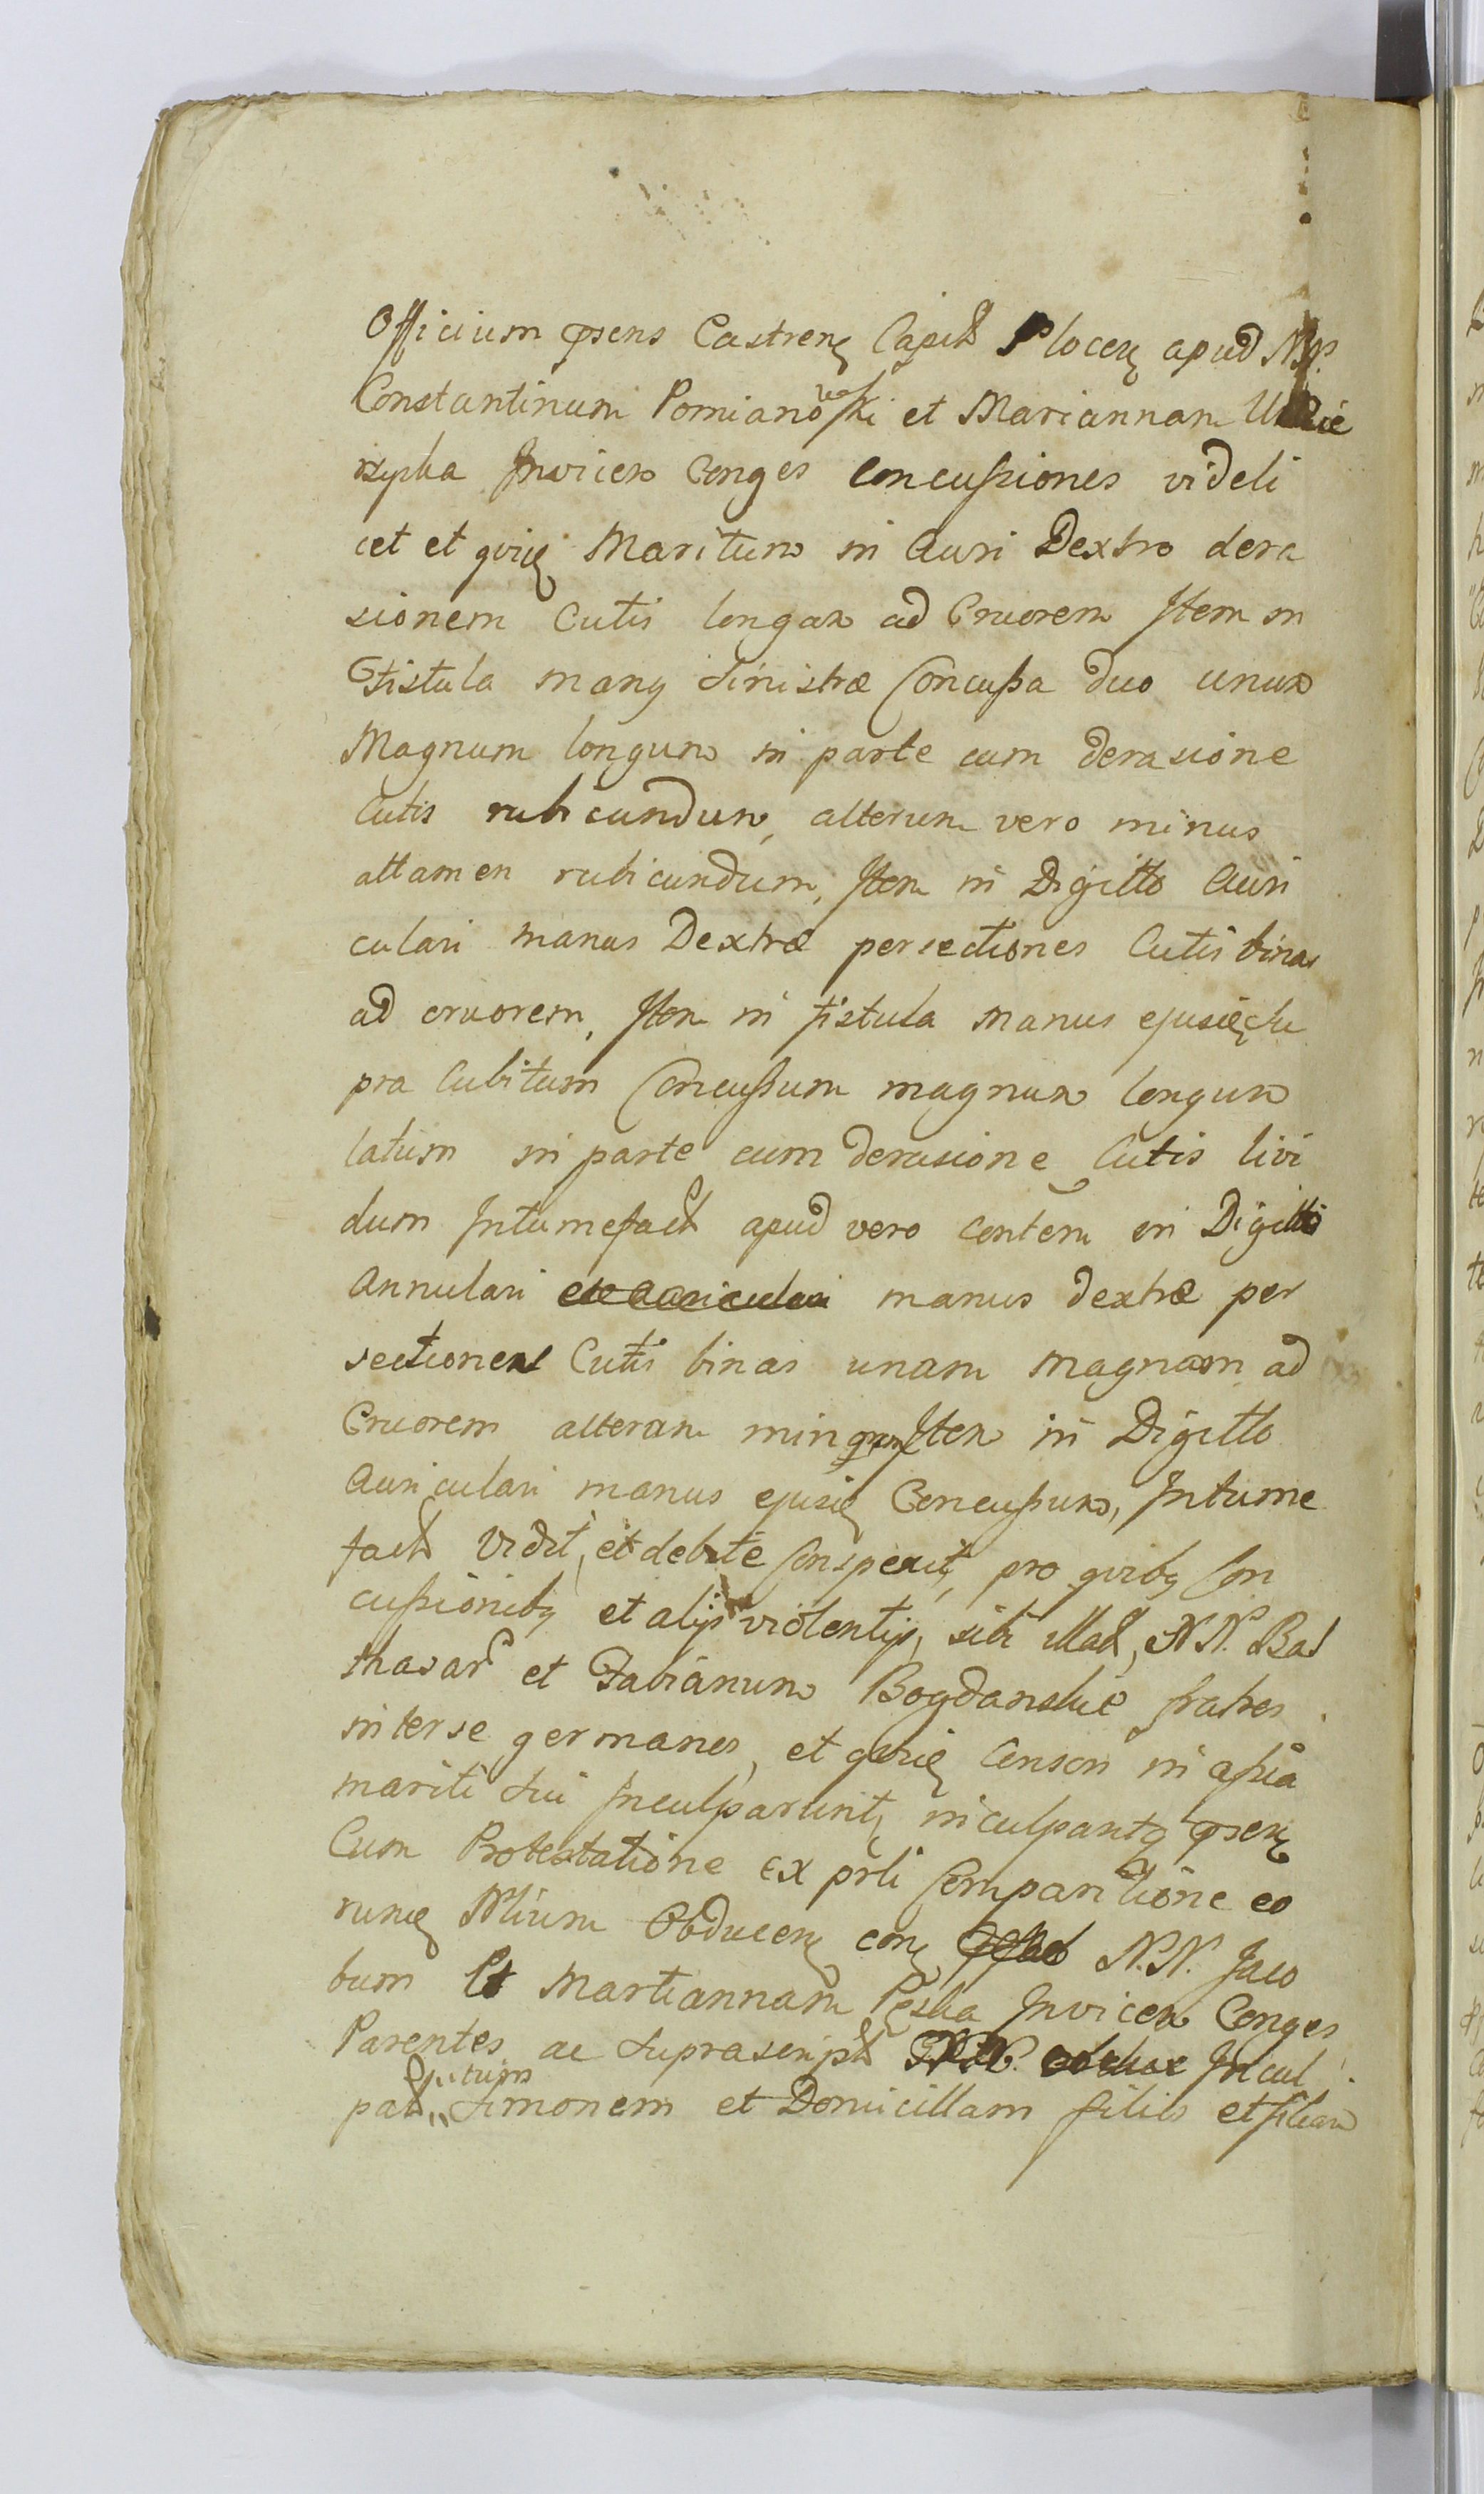 Officium prsens Castren Capit Plocen apud NN.
Constantinum Pomianowski et Mariannam
Invicem Conges Concussiones videli
cet et qrie Maritum in Auri Dextro dera
sionem Cutis longam ad Cruorem Item in
Fistula manq Sinistræ Concussa duo unum
Magnum longum in parte cum derasione
Cutis rubicundum, alterum vero minus
attamen rubicundum, Item in Digitto Auri
culari manus Dextræ persectiones Cutis binas
ad cruorem, Item in fistula manus ejusd Su
pra Cubitum Concussum magnum longum
latum in parte cum derasione Cutis livi
dum Intumefact apud vero Contem in Digitto
Annulari et Auriculari manus dextræ per
sectiones Cutis binas unam magnam ad
Cruorem alteram minorem Item in Digitto
Auriculari manus ejusd Concussum, Intume
fact Vidit, et debite Conspexit, pro qvibq Con
cussionibq et alijs violentijs, sibi illat, NN. Bal
thasar et Fabianum Bogdanskie fratres
inter se germanos, et qrie Conson in assia
mariti sui Inculparunt, inculpantq prsen
Cum Protestatione ex prli Comparitione eo
rund Nlium Obducen con N.N. Jaco
bum et Martiannam Invicem Conges
Parentes ac Suprascript Incul
pat, Simonem et Domicillam filib et filiam